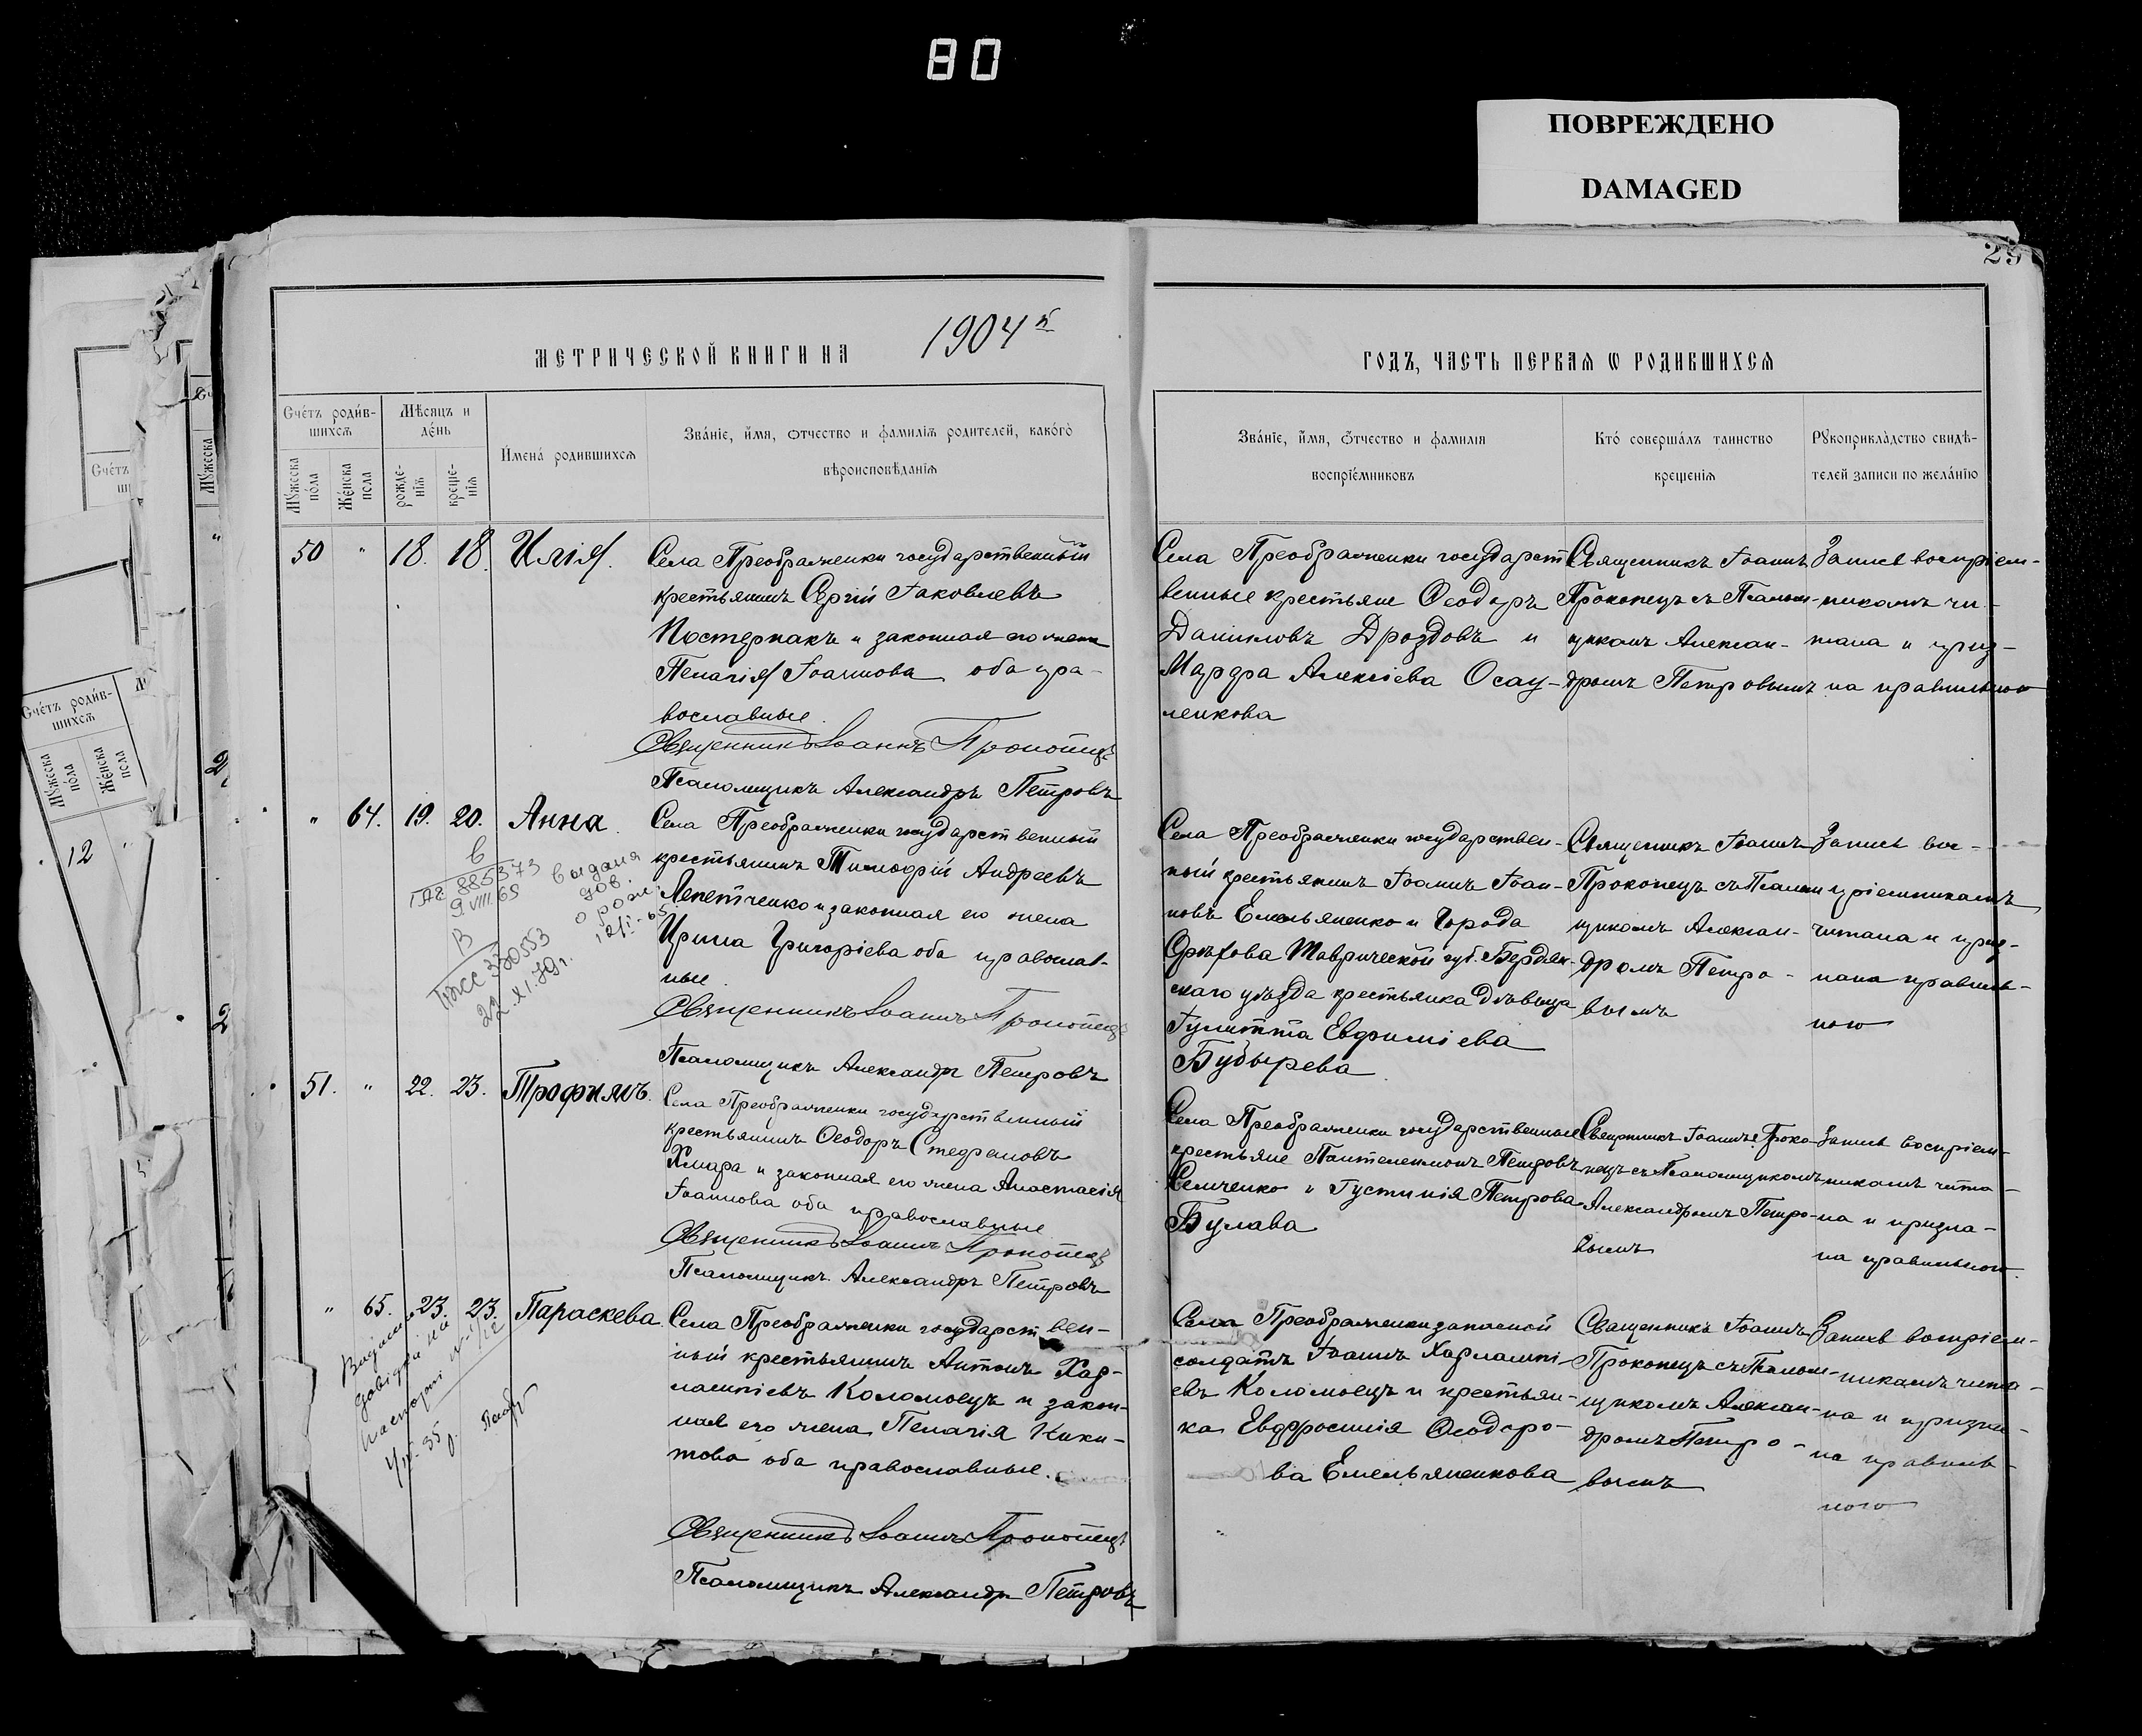 80
ПОВРЕЖДЕНО
DAMAGED
29
МЕТРИЧЕСКОЙ КНИГИ НА 1904й
ГОДЪ, ЧАСТЬ ПЕРВАЯ Ѡ РОДИВШИХСЯ
Счётъ родив-
шихся
Мѣсяцъ и
день
Имена родившихся
Званіе, имя, отчество и фамилія родителей, какого
вѣроисповѣданія
Мужеска
пола
Женска
пола
рожде-
нія
креще-
нія
Званіе, имя, отчество и фамилія
воспріемниковъ
Кто совершалъ таинство
крещенія
Рукоприкладство свидѣ-
телей записи по желанію
50 " 18. 18. Илія.
Села Преображенки государственный
крестьянинъ Сергій Іаковлевъ
Постернакъ и законная его жена
Пелагія Іоаннова оба пра-
вославные.
Священникъ Іоаннъ Прокопецъ
Псаломщикъ Александръ Петровъ
Села Преображенки государст
венные крестьяне Ѳеодоръ
Даниловъ Дроздовъ и
Марфа Алексіева Осау-
ленкова
Священникъ Іоаннъ
Прокопецъ съ Псалом-
щикомъ Алексан-
дромъ Петровымъ
Запись воспріем-
никамъ чи-
тана и приз-
на правильною
" 64. 19. 20. Анна.
Села Преображенки государственный
крестьянинъ Тимофій Андреевъ
Лепетченко и законная его жена
Ирина Григоріева оба православ-
ные
Священникъ Іоаннъ Прокопецъ
Псаломщикъ Александръ Петровъ
Села Преображенки государствен-
ный крестьянинъ Іоаннъ Іоан-
новъ Емельяненко и города
Орѣхова Таврической губ. Бердян-
скаго уѣзда крестьянка дѣвица
Іулитта Евфиміева
Бубырева
Священникъ Іоаннъ
Прокопецъ съ Псалом
щикомъ Алексан-
дромъ Петро-
вымъ
Запись вос-
пріемникамъ
читана и приз-
нана правиль-
ною
В
885373
9.VIII.65
выдана
дов.
о рож.
12/I-65
В
330553
22.XI.79г.
51. " 22. 23. Трофимъ.
Села Преображенки государственный
крестьянинъ Ѳеодоръ Стефановъ
Хмара и законная его жена Анастасія
Іоаннова оба православные
Священникъ Іоаннъ Прокопецъ
Псаломщикъ Александръ Петровъ
Села Преображенки государственные
крестьяне Пантелеимонъ Петровъ
Семченко и Іустинія Петрова
Булава
Священникъ Іоаннъ Проко-
пецъ съ Псаломщикомъ
Александромъ Петро-
вымъ
Запись воспріем-
никамъ чита-
на и призна-
на правильною.
" 65. 23. 23. Параскева.
Села Преображенки государствен-
ный крестьянинъ Антонъ Хар-
лампіевъ Коломоецъ и закон-
ная его жена Пелагія Ники-
това оба православные.
Священникъ Іоаннъ Прокопецъ
Псаломщикъ Александръ Петровъ
Села Преображенки запасной
солдатъ Іоаннъ Харлампі-
евъ Коломоецъ и крестьян-
ка Евфросинія Ѳеодоро-
ва Емельяненкова
Священникъ Іоаннъ
Прокопецъ съ Псалом-
щикомъ Алексан-
дромъ Петро-
вымъ
Запись воспріем-
никамъ чита-
на и призна-
на правиль-
ною
12